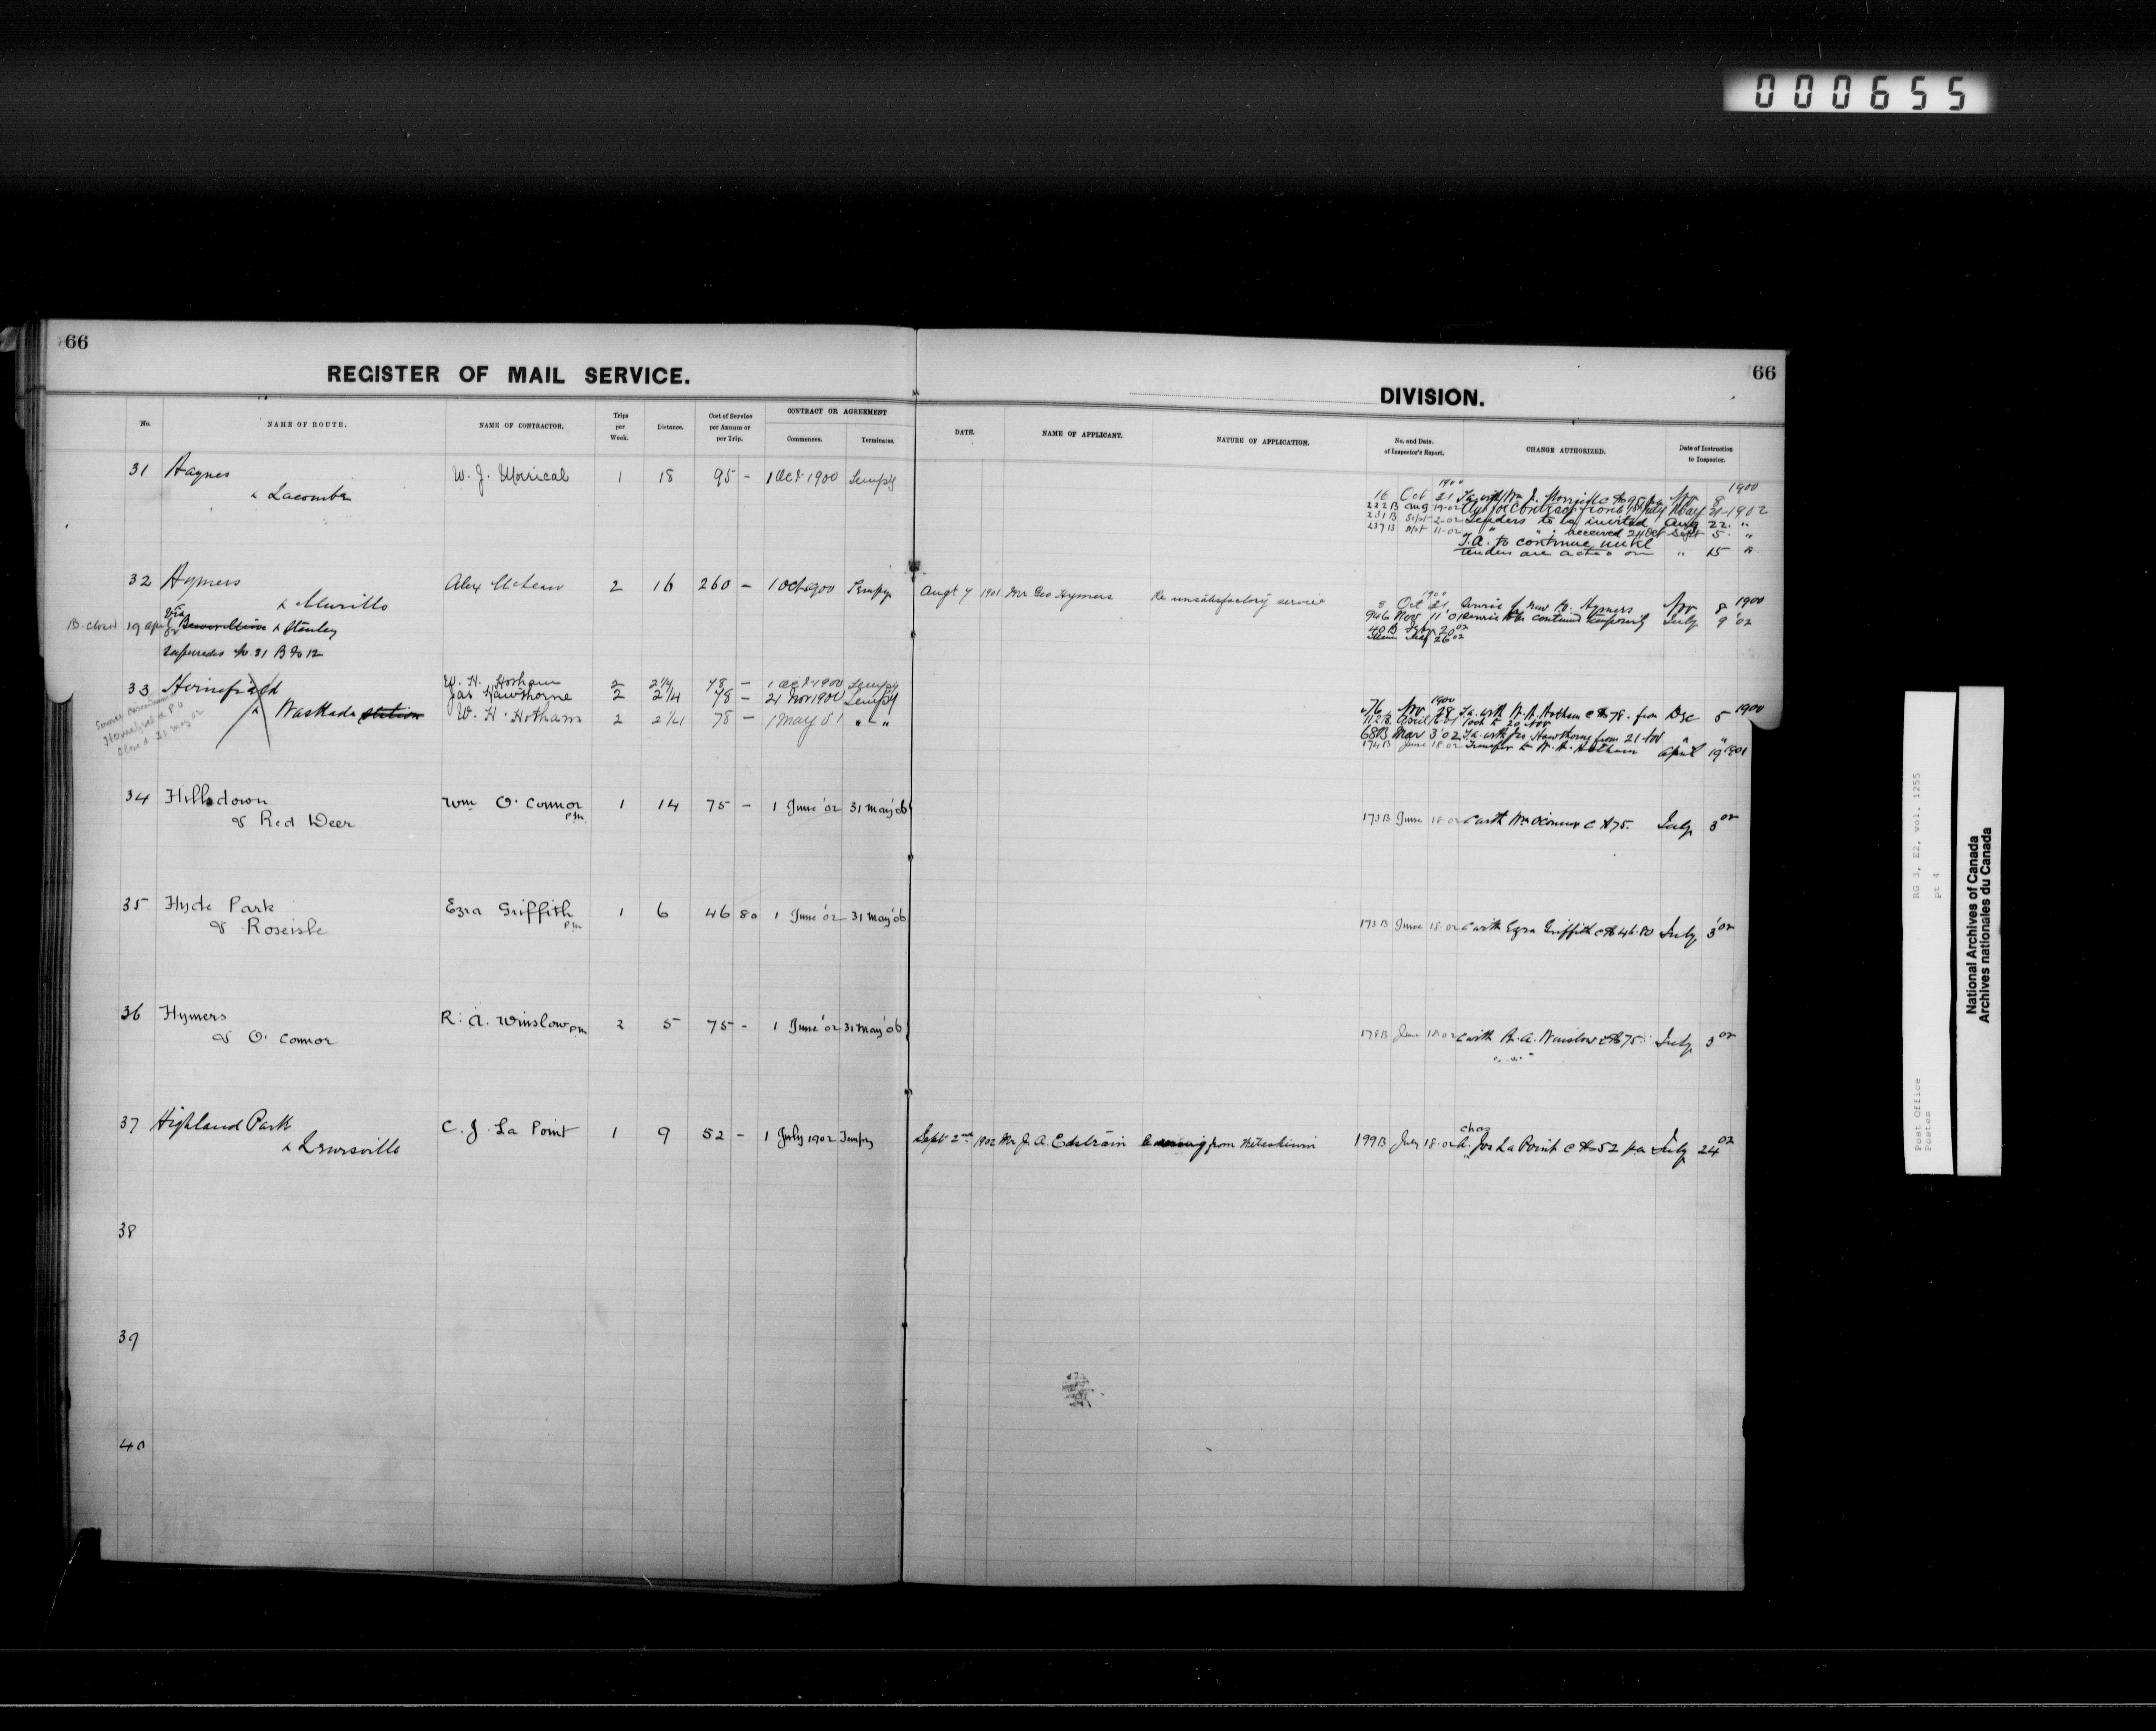 000655
66
REGISTER OF MAIL SERVICE.
No.
NAME OF ROUTE.
NAME OF CONTRACTOR.
Trips per Week.
Distance.
Cost of Service per Annum or per Trip.
CONTRACT OR AGREEMENT
Commences.
Terminates.
66
DIVISION.
DATE.
NAME OF APPLICANT.
NATURE OF APPLICATION.
No. and Date. of Inspector's Report.
CHANGE AUTHORIZED.
Date of Instruction to Inspector.
31 Haynes W. J. Morrical 1 18 95 - 1 Oct 1900 Tempy
& Lacombe
1900 1900
16 Oct 21 Nov 8
222B Aug 19-02 May 21-1902
231B Sept 2-02 Tenders to be invited Aug 22 "
237B Sept 11-02 " " received 24 Oct Sept 5 "
T.A. to continue until
tenders are acted on " 15 "
32 Hymers Alex McLean 2 16 260 - 1 Oct 1900 Tempy Augt 7 1901 Mr Geo Hymers Re unsatisfactory service
& Murillo
1900
8 Oct 21 Hymers Nov 8 1900
946 Nov 11 '01 Service to be continued temporarily July 9 '02
40B 20 02
26 02
B. closed 19 via & Stanley
Supersedes No. 31 B to 12
33 W. H. Hotham 2 2¼ 78 - 1 Oct 1900 Tempy
Jas Hawthorne 2 2¼ 78 - 21 Nov 1900 Tempy
& Waskada station W. H. Hotham 2 2¼ 78 - 1 May 01 " "
closed 20 May 02
1900
76 Nov 28 T.a. with W. H. Hotham @ $78. from Dec 5 1900
112B April 6-01 Oct to 20 Nov
68B Mar 3 '02 T.a. with Jas Hawthorne from 21 Nov " "
174B June 18 02 Transfer to W. H. Hotham April 19 1901
34 Hillsdown Wm O'Connor pm. 1 14 75 - 1 June '02 31 May '06
& Red Deer
173B June 18 02 C with Wm O'Connor @ $75. July 3 02
35 Hyde Park Ezra Griffith pm 1 6 46 80 1 June '02 31 May '06
& Roseisle
173B June 18 02 C with Ezra Griffith @ $46.80 July 3 '02
36 Hymers R. A. Winslow pm 2 5 75 - 1 June '02 31 May '06
& O'Connor
178B June 18 02 C with R. A. Winslow @ $75. July 3 02
37 Highland Park C. J. La Point 1 9 52 - 1 July 1902 Tempy Sept 2nd 1902 Mr J. A. Edstrom from Wetaskiwin
& Lewisville
chas
199B July 18 02 A. Jos La Point @ $52 pa July 24 02
38
39
40
Post Office RG 3, E2, vol. 1255
Postes pt 4
National Archives of Canada
Archives nationales du Canada